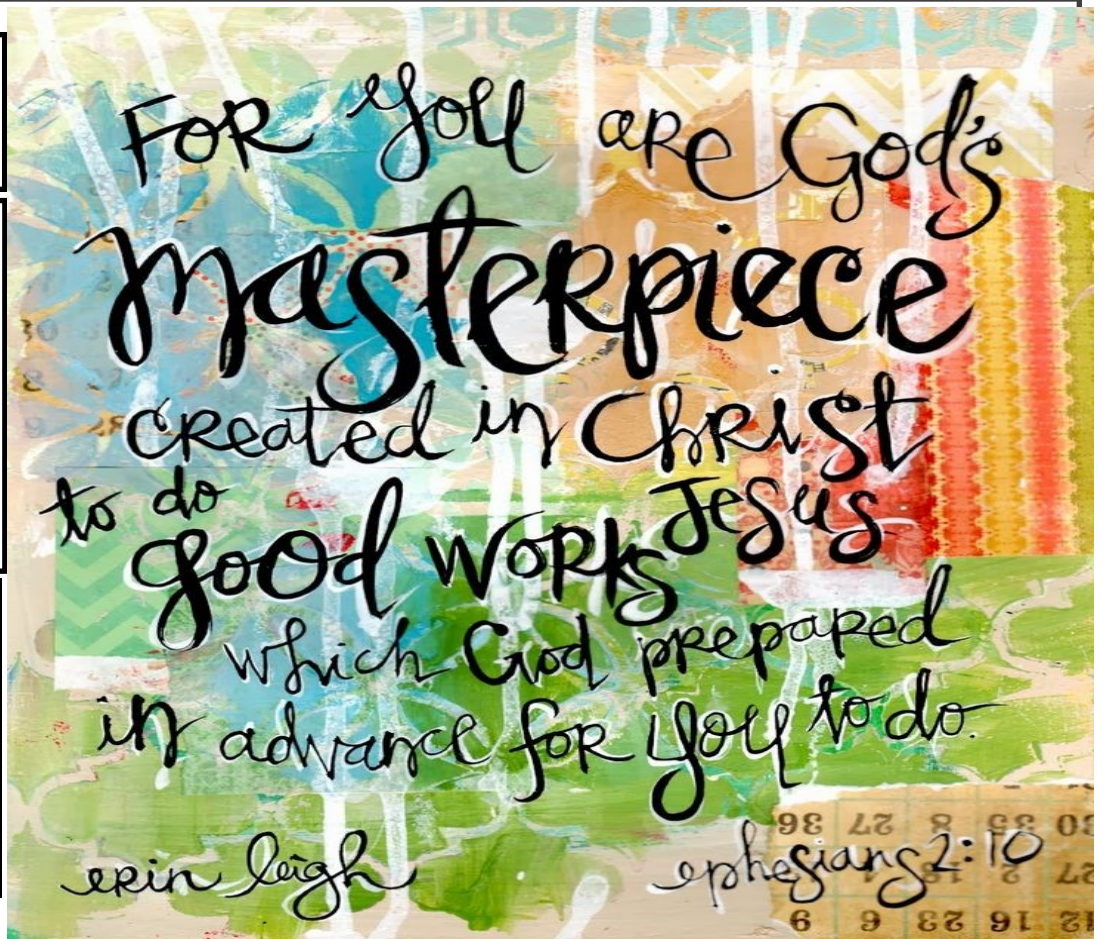 FOR you are God's
masterpiece
created in Christ
to do Jesus
good works
which God prepared
in advance for you to do.
erin leigh ephesians 2:10
36 27 8 35 30
9 6 23 16 21